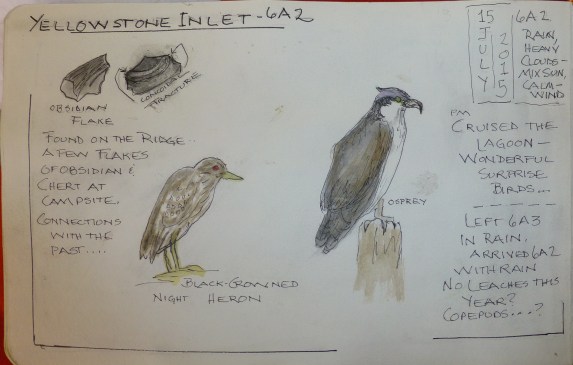 YELLOWSTONE INLET - 6A2
OBSIDIAN
FLAKE
CONCOIDAL
FRACTURE
FOUND ON THE RIDGE..
A FEW FLAKES
OF OBSIDIAN &
CHERT AT
CAMPSITE.
CONNECTIONS
WITH THE
PAST....
BLACK-CROWNED
NIGHT HERON
OSPREY
15
JULY
2015
6A2
RAIN,
HEAVY
CLOUDS-
MIX SUN,
CALM-
WIND
PM
CRUISED THE
LAGOON-
WONDERFUL
SURPRISE
BIRDS...
LEFT 6A3
IN RAIN.
ARRIVED 6A2
WITH RAIN
NO LEACHES THIS
YEAR?
COPEPODS...?